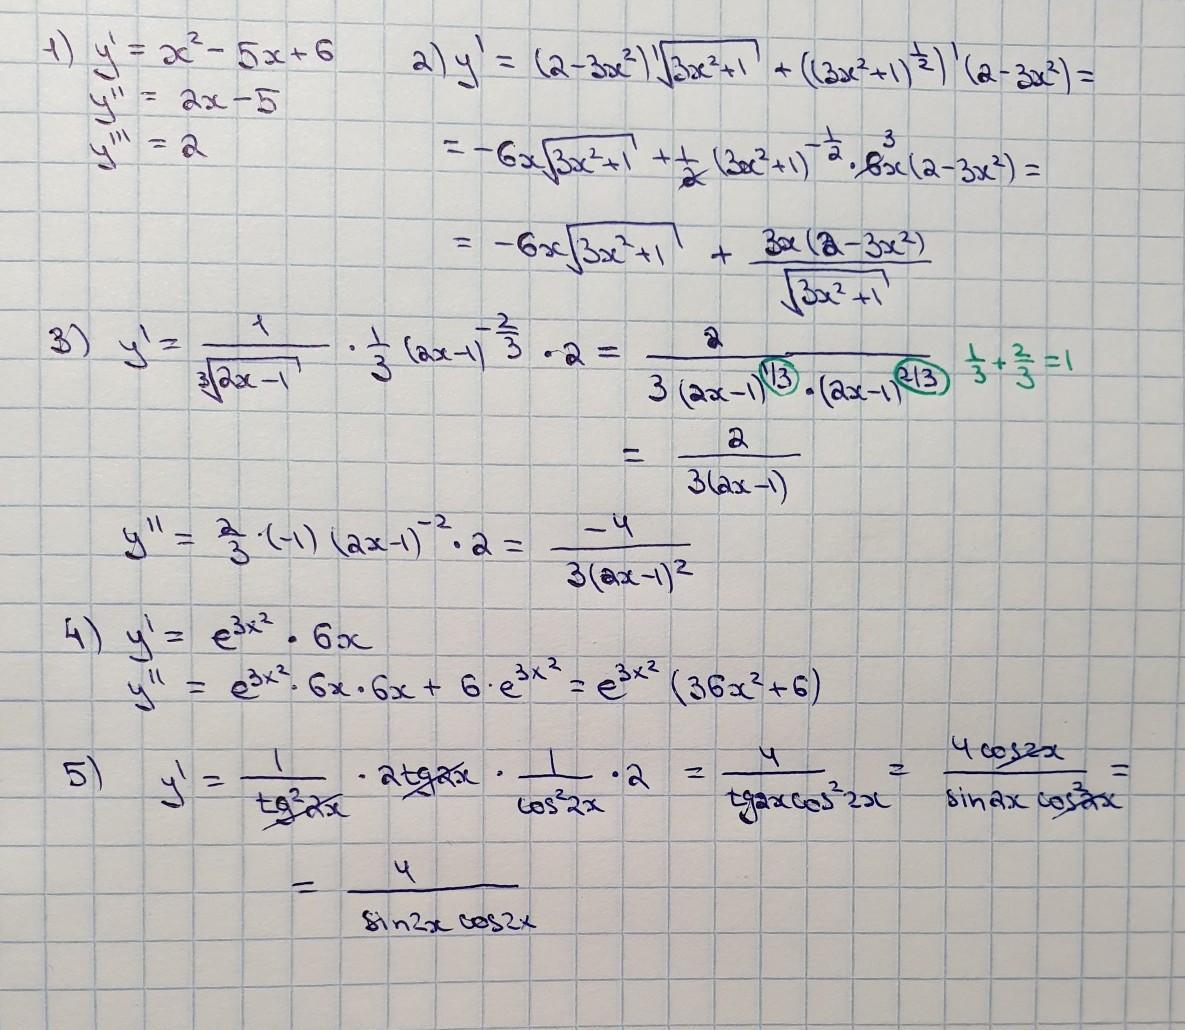 1) y' = x² − 5x + 6
y'' = 2x − 5
y''' = 2
2) y' = (2 − 3x²)'√(3x² + 1) + ((3x² + 1)^(1/2))' (2 − 3x²) =
= −6x√(3x² + 1) + 1/2 (3x² + 1)^(−1/2) · 6x (2 − 3x²) = 3
= −6x√(3x² + 1) + 3x(2 − 3x²)/√(3x² + 1)
3) y' = 1/∛(2x − 1) · 1/3 (2x − 1)^(−2/3) · 2 = 2/(3(2x − 1)^(1/3) · (2x − 1)^(2/3)) 1/3 + 2/3 = 1
= 2/(3(2x − 1))
y'' = 2/3 · (−1) (2x − 1)^(−2) · 2 = −4/(3(2x − 1)²)
4) y' = e^(3x²) · 6x
y'' = e^(3x²) · 6x · 6x + 6 · e^(3x²) = e^(3x²) (36x² + 6)
5) y' = 1/(tg²2x) · 2tg2x · 1/(cos²2x) · 2 = 4/(tg2x cos²2x) = 4cos2x/(sin2x cos²2x) =
= 4/(sin2x cos2x)